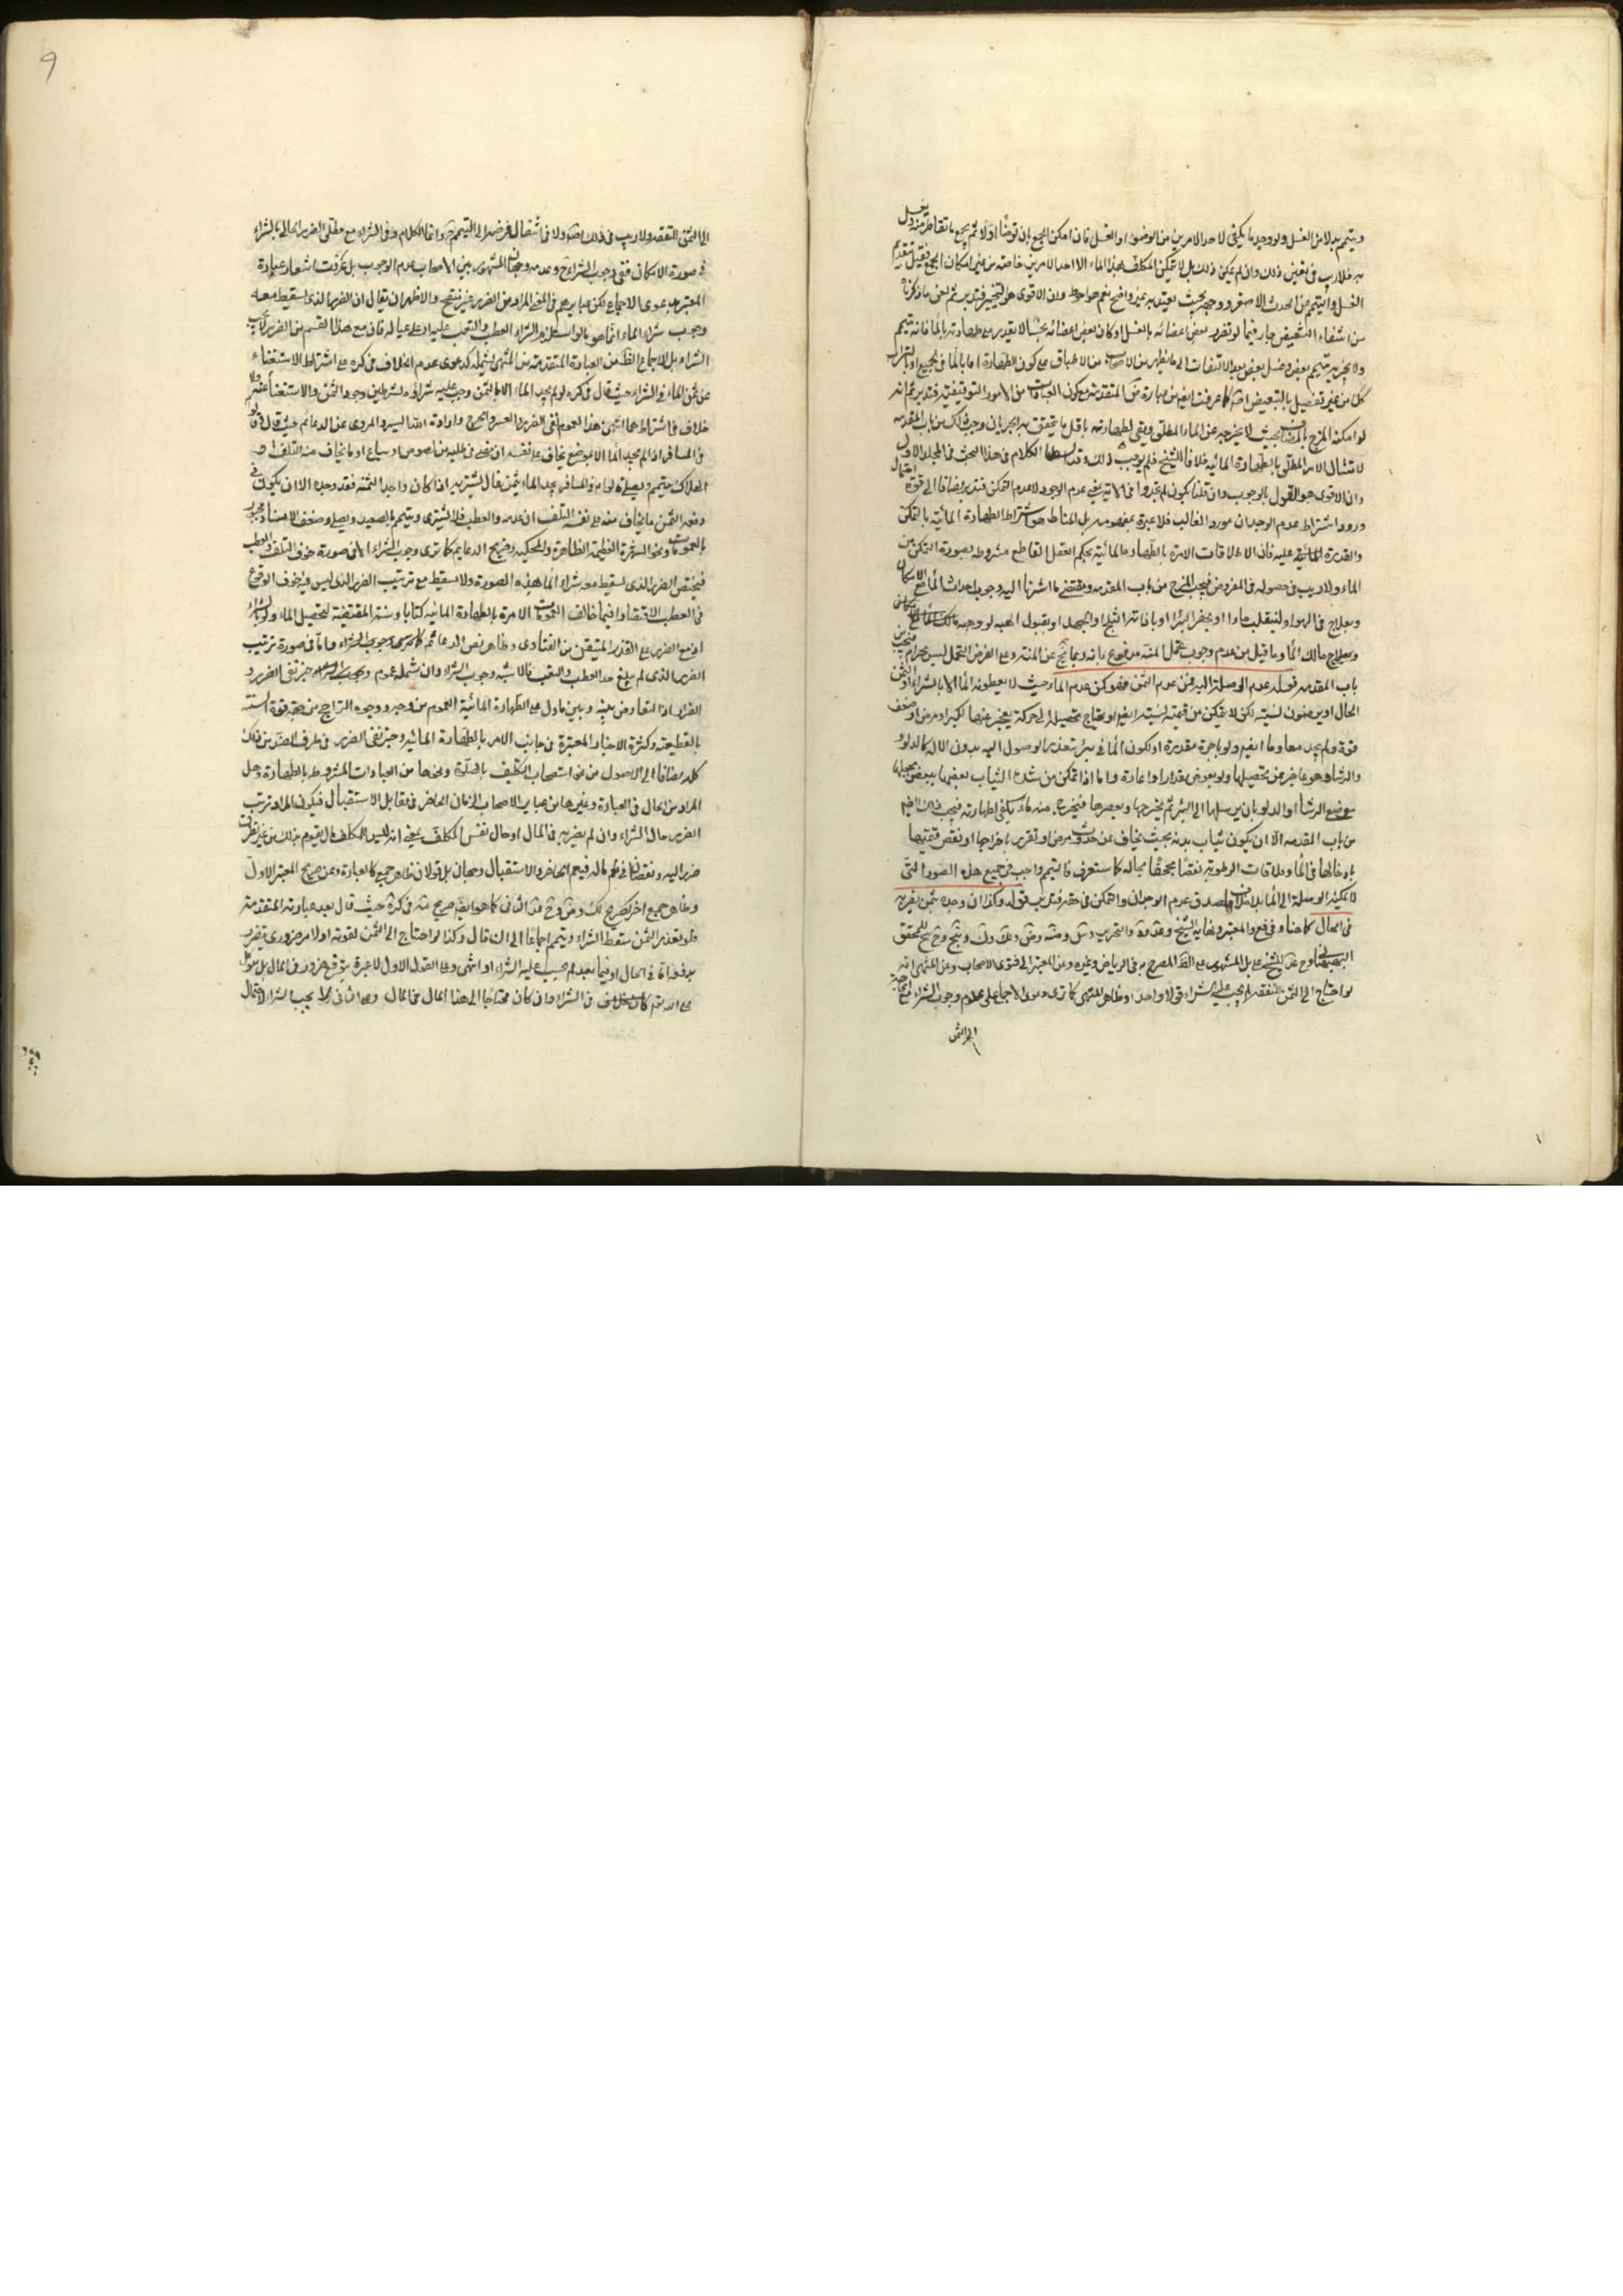 ويتيمم بدلا من الغسل ولو وجد ما يكفي لاحد الامرين من الوضوء او الغسل فان امكن الجمع بان توضأ اولا ثم يجمع ما تقاطر منه ويغسل
به فلا ريب في تعين ذلك وان لم يمكن ذلك بل لا يمكن المكلف بهذا الماء الا احد الامرين خاصة من غير امكان الجمع فقيل بتقديم
الغسل والتيمم من الحدث الاصغر ووجهه بحيث يعتد به غير واضح نعم هو احوط وان الاقوى هو التخيير فتدبر ثم لعل ما ذكرنا
من انتفاء التبعيض جار فيما لو تضرر بعض اعضائه بالغسل او كان بعض اعضائه نجسا لا يقدر على طهارته بالماء فانه يتيمم
ولا يجزيه تيمم بعض وغسل بعض بعد الالتفات الى ما يظهر من الاصحاب من الاطباق على كون الطهارة اما بالماء في الجميع او بالتراب
كل من غير تفصيل بالتبعيض كما عرفت ايضا من عبارة المتقدمة مع كون العبادات من الامور التوقيفية فتدبر ثم انه
لو امكنه المزج بالمضاف بحيث لا يخرجه عن الماء المطلق ويفي لطهارته باقل ما يتحقق به الجريان وجب ذلك من باب المقدمة
لامتثال الامر المطلق بالطهارة المائية خلافا للشيخ فلم يوجب ذلك وقد الكلام في هذا البحث في المجلد الاول
وان الاقوى هو القول بالوجوب وان قلنا بكون لم تجدوا في الآية بمعنى عدم الوجود لا عدم التمكن فتدبر مضافا الى قوة احتمال
ورود اشتراط عدم الوجدان مورد الغالب فلا عبرة بمفهومه بل المناط هو اشتراط الطهارة المائية بالتمكن
والقدرة عليه فان الاطلاقات الامرة بالطهارة المائية بحكم العقل القاطع مشروطة بصورة التمكن من
الماء ولا ريب في حصوله في المفروض فيجب المزج من باب المقدمة ومقتضى ما اشرنا اليه وجوب احداث الماء مع الامكان
وبعلاج في الهواء لينقلب ماء او بحفر البئر او باذابة الثلج او الجمد او بقبول الهبة لو وهبه مالك الماء
وبعلاج مالك الماء وما قيل من عدم وجوب تحمل المنة مدفوع بانه ربما يخلو عن المنة وعلى الفرض التحمل ليس بحرام فيجب من
باب المقدمة قوله عدم الوصلة اليه فمن عدم الثمن فهو كمن عدم الماء حيث لا يعطونه الماء الا بالشراء او الثمن
الحال او يرضون لنسيئة لكن لا يتمكن من قيمته لنسيئة ايضا لو يحتاج تحصيله الى حركة يعجز عنها لكبر او مرض او ضعف
قوة ولم يجد معاونا ايضا ولو باجرة مقدورة او لكون الماء في بئر يتعذر الوصول اليه بدون الالة كالدلو
والرشاء هو عاجز من تحصيلها ولو بعوض مقدار او اعارة واما اذا تمكن من شد الثياب بعضها ببعض يجعلها
عوض الرشاء او الدلو بان يرسلها الى البئر ثم يخرجها ويعصرها فيخرج منه ماء يكفي لطهارته فيجب ذلك ايضا
من باب المقدمة الا ان يكون ثياب بدنه بحيث يخاف من حدوث مرض او تضرر باخراجها او نقص قيمتها
بادخالها في الماء وملاقات الرطوبة نقصا مجحفا بحاله كما ستعرف فالتيمم واجب في جميع هذه الصور التي
لا يمكنه الوصلة الى الماء بلا خلاف لصدق عدم الوجدان والتمكن في حقه فتدبر قوله وكذا ان وجده بثمن يضر به
في الحال كما هنا وفي فع والمعتبر ونهاية الشيخ والتحرير للمحقق
على المشهور على الظاهر المصرح به في الرياض وغيره وعن المعتبر الى فتوى الاصحاب وعن المنتهى انه
لو احتاج الى الثمن للنفقة لم يجب عليه الشراء قولا واحدا وظاهر المنتهى كما ترى دعوى الاجماع على عدم وجوب الشراء مع الحاجة
الى الثمن
9
الى الثمن للنفقة ولا ريب في ذلك ولا في انتقال فرضه الى التيمم وانما الكلام في الشراء مع مطلق الضرر الحالي بالشراء
في صورة الامكان ففي وجوب الشراء وعدمه وجهان المشهور بين الاصحاب عدم الوجوب بل عرفت اشعار عبارة
المعتبر بدعوى الاجماع لكن عبايرهم في المعنى المراد من الضرر غير منقح والاظهر ان يقال ان الضرر الذي يسقط معه
وجوب شراء الماء انما هو ما لو استلزم الشراء العطب والتعب عليه او على عياله فان مع هذا القسم من الضرر لا يجب
الشراء بل الاجماع الظاهر من العبارة المتقدمة من المنتهى يشمله كدعوى عدم الخلاف في كره على اشتراط الاستغناء
عن ثمن الماء في الشراء حيث قال في كره لو لم يجد الماء الا بالثمن وجب عليه شراؤه لشرطين وجود الثمن والاستغناء عنه ولا
خلاف في اشتراطهما انتهى هذا لعموم نفي الضرر والعسر والحرج وارادة الله اليسر والمروي عن الدعائم حيث قال
في المسافر اذا لم يجد الماء الا بموضع يخاف على نفسه ان مضى في طلبه من لصوص او سباع او ما يخاف منه التلف او
الهلاك يتيمم ويصلي قالوا في المسافر يجد الماء بثمن غال يشتريه اذا كان واجدا لثمنه فقد وجده الا ان يكون في
دفعه الثمن ما يخاف منه على نفسه التلف ان عدمه والعطب فلا يشتري ويتيمم بالصعيد ويصلي وضعف الاسناد مجبور
بالعمومات ونحو الشهرة العظيمة الظاهرة والمحكية وصريح الدعائم كما ترى وجوب الشراء الا في صورة خوف التلف والعطب
فيختص الضرر الذي يسقط معه شراء الماء بهذه الصورة ولا يسقط مع ترتيب الضرر الذي ليس فيه خوف الوقوع
في العطب الاقتصار فيما خالف العمومات الامرة بالطهارة المائية كتابا وسنة المقتضية لتحصيل الماء ولو بالشراء
او مع الضرر على القدر المتيقن من الفتاوى وظاهر نص الدعائم كما ترى وجوب الشراء واما في صورة ترتيب
الضرر الذي لم يبلغ حد العطب والتعب فالاشبه وجوب الشراء وان شمله عموم خبر نفي الضرر و
الضرار اذ التعارض بينه وبين ما دل على الطهارة المائية العموم من وجه ووجوه التراجيح من جهة قوة السنة
بالقطعية وكثرة الاخبار المعتبرة في جانب الامر بالطهارة المائية وخبر نفي الضرر في طرف الضد من ذلك
كله مضافا الى الاصول من نحو استصحاب التكليف بالصلوة ونحوها من العبادات المشروطة بالطهارة وهل
المراد من الحال في العبارة وغيرها من عباير الاصحاب الزمان الحاضر في مقابل الاستقبال فيكون المراد ترتب
الضرر حال الشراء وان لم يضر به في المال او حال نفس المكلف بمعنى انه ليس للمكلف مال يقوم بذلك من غير تطرق
ضرر اليه ونقصان في ماله فيعم الحاضر والاستقبال وجهان بل قولان ظاهر جمع كالعبارة وعن صريح المعتبر الاول
وظاهر جمع اخر كصريح الثاني كما هو ايضا صريح في كره حيث قال بعد عبارته المتقدمة
فلو تعذر الثمن سقط الشراء ويتيمم اجماعا الى ان قال وكذا لو احتاج الى الثمن لقوته او لامر ضروري يتضرر
بدفعه اما في الحال او فيما بعد لم يجب عليه الشراء انتهى وعلى القول الاول لا عبرة بتوقع ضرر في المال بل يتوكل
على الله ثم في الشراء وان كان محتاجا الى هذا المال في المال وعلى الثاني لا يجب الشراء لاحتمال